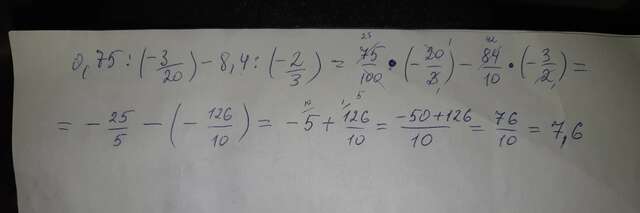 0,75 : (-3/20) - 8,4 : (-2/3) = 75/100 · (-20/3) - 84/10 · (-3/2) =
= - 25/5 - (- 126/10) = -5 + 126/10 = -50+126/10 = 76/10 = 7,6